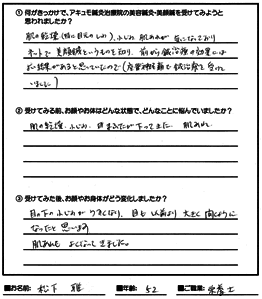 ① 何がきっかけで、アキュモ鍼灸治療院の美容鍼灸・美顔鍼を受けてみようと
思われましたか？
肌の乾燥（特に目元のしわ）、ふじみ、肌あれが気になっており
ネットで美顔鍼というものを知り、前から鍼治療の効果には
よい結果があると思っていたので（座骨神経痛で鍼治療を受けて
いました）
② 受けてみる前、お顔やお体はどんな状態で、どんなことに悩んでいましたか？
肌の乾燥、ふじみ、目まぶたが下ってきた、肌あれ
③ 受けてみた後、お顔やお身体がどう変化しましたか？
目の下のふじみがうすくなり、目も以前より大きく開くように
なったと思います
肌あれもよくなってきました。
■お名前: 松下 雅 ■年齢: 52 ■ご職業: 栄養士